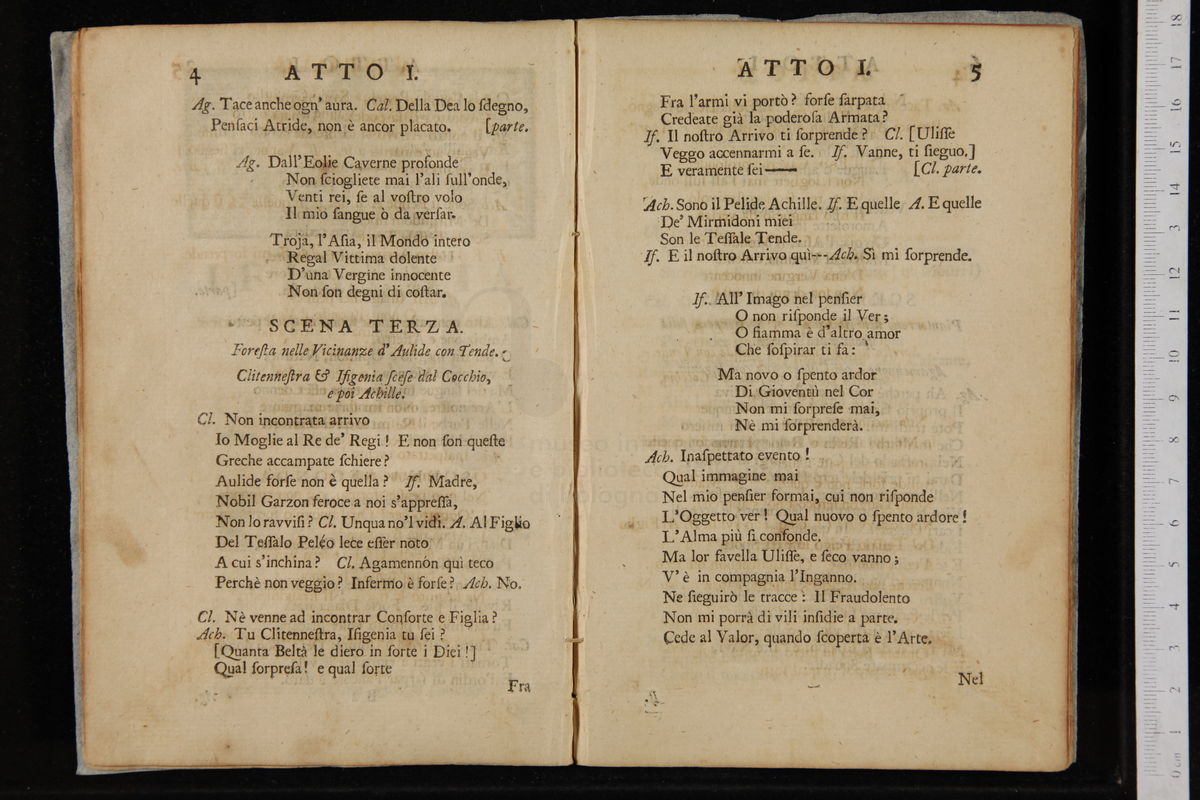 4 ATTO I.
Ag. Tace anche ogn' aura. Cal. Della Dea lo ſdegno,
Penſaci Atride, non è ancor placato. [parte.
Ag. Dall' Eolie Caverne profonde
Non ſciogliete mai l'ali ſull'onde,
Venti rei, ſe al voſtro volo
Il mio ſangue ò da verſar.
Troja, l'Aſia, il Mondo intero
Regal Vittima dolente
D'una Vergine innocente
Non ſon degni di coſtar.
SCENA TERZA.
Foreſta nelle Vicinanze d'Aulide con Tende.
Clitenneſtra & Ifigenia ſceſe dal Cocchio,
e poi Achille.
Cl. Non incontrata arrivo
Io Moglie al Re de' Regi! E non ſon queſte
Greche accampate ſchiere?
Aulide forſe non è quella? If. Madre,
Nobil Garzon feroce a noi s'appreſſa,
Non lo ravviſi? Cl. Unqua no'l vidi. A. Al Figlio
Del Teſſalo Peléo lece eſſer noto
A cui s'inchina? Cl. Agamennòn quì teco
Perchè non veggio? Infermo è forſe? Ach. No.
Cl. Nè venne ad incontrar Conſorte e Figlia?
Ach. Tu Clitenneſtra, Ifigenia tu ſei?
[Quanta Beltà le diero in ſorte i Diei!]
Qual ſorpreſa! e qual ſorte
Fra
ATTO I. 5
Fra l'armi vi portò? forſe ſarpata
Credeate già la poderoſa Armata?
If. Il noſtro Arrivo ti ſorprende? Cl. [Uliſſe
Veggo accennarmi a ſe. If. Vanne, ti ſieguo.]
E veramente ſei—— [Cl. parte.
Ach. Sono il Pelide Achille. If. E quelle A. E quelle
De' Mirmidoni miei
Son le Teſſale Tende.
If. E il noſtro Arrivo quì--- Ach. Sì mi ſorprende.
If. All' Imago nel penſier
O non riſponde il Ver;
O fiamma è d'altro amor
Che ſoſpirar ti fa:
Ma novo o ſpento ardor
Di Gioventù nel Cor
Non mi ſorpreſe mai,
Nè mi ſorprenderà.
Ach. Inaſpettato evento!
Qual immagine mai
Nel mio penſier formai, cui non riſponde
L'Oggetto ver! Qual nuovo o ſpento ardore!
L'Alma più ſi confonde.
Ma lor favella Uliſſe, e ſeco vanno;
V' è in compagnia l'Inganno.
Ne ſieguirò le tracce: Il Fraudolento
Non mi porrà di vili inſidie a parte.
Cede al Valor, quando ſcoperta è l'Arte.
Nel